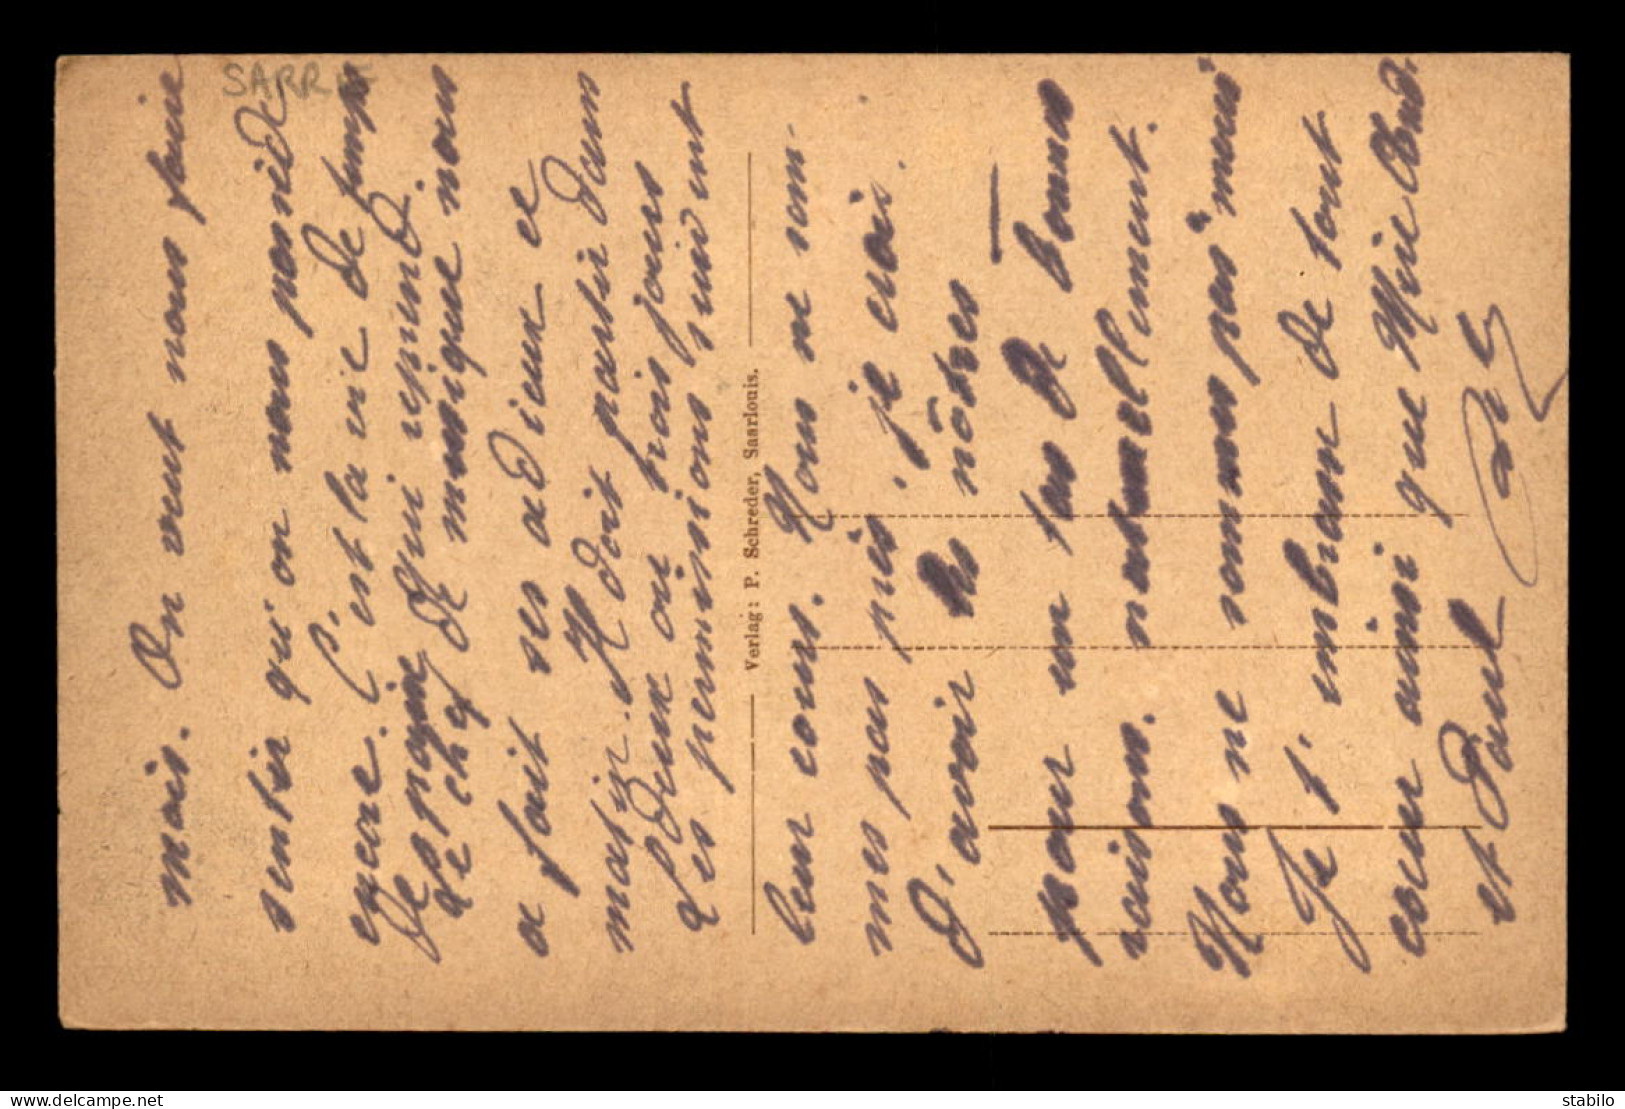 SARRE
mois. On veut nous faire
sentir qu'on nous possède
encore. C'est la vie de
de qui reprend.
Le chef de musique nous
a fait ses adieux ce
matin. Il doit partir dans
deux ou trois jours
Les permissions suivent
Verlag: P. Schreder, Saarlouis.
leur cours. Nous ne som-
mes pas près, je crois.
d'avoir les nôtres —
pour un tas de bonnes
raisons. naturellement.
Nous ne sommes pas
Je t'embrasse de tout
cœur ainsi que
et Paul